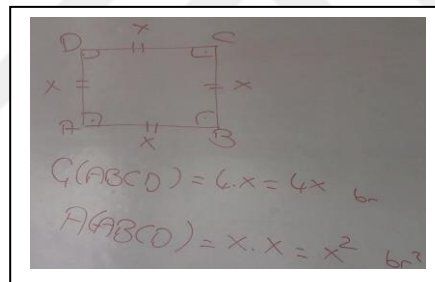 D x C
x x
A x B
Ç(ABCD) = 4.x = 4x br
A(ABCD) = x.x = x² br²